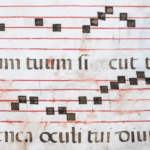 um tuum si cut t
nca oculi tui diui